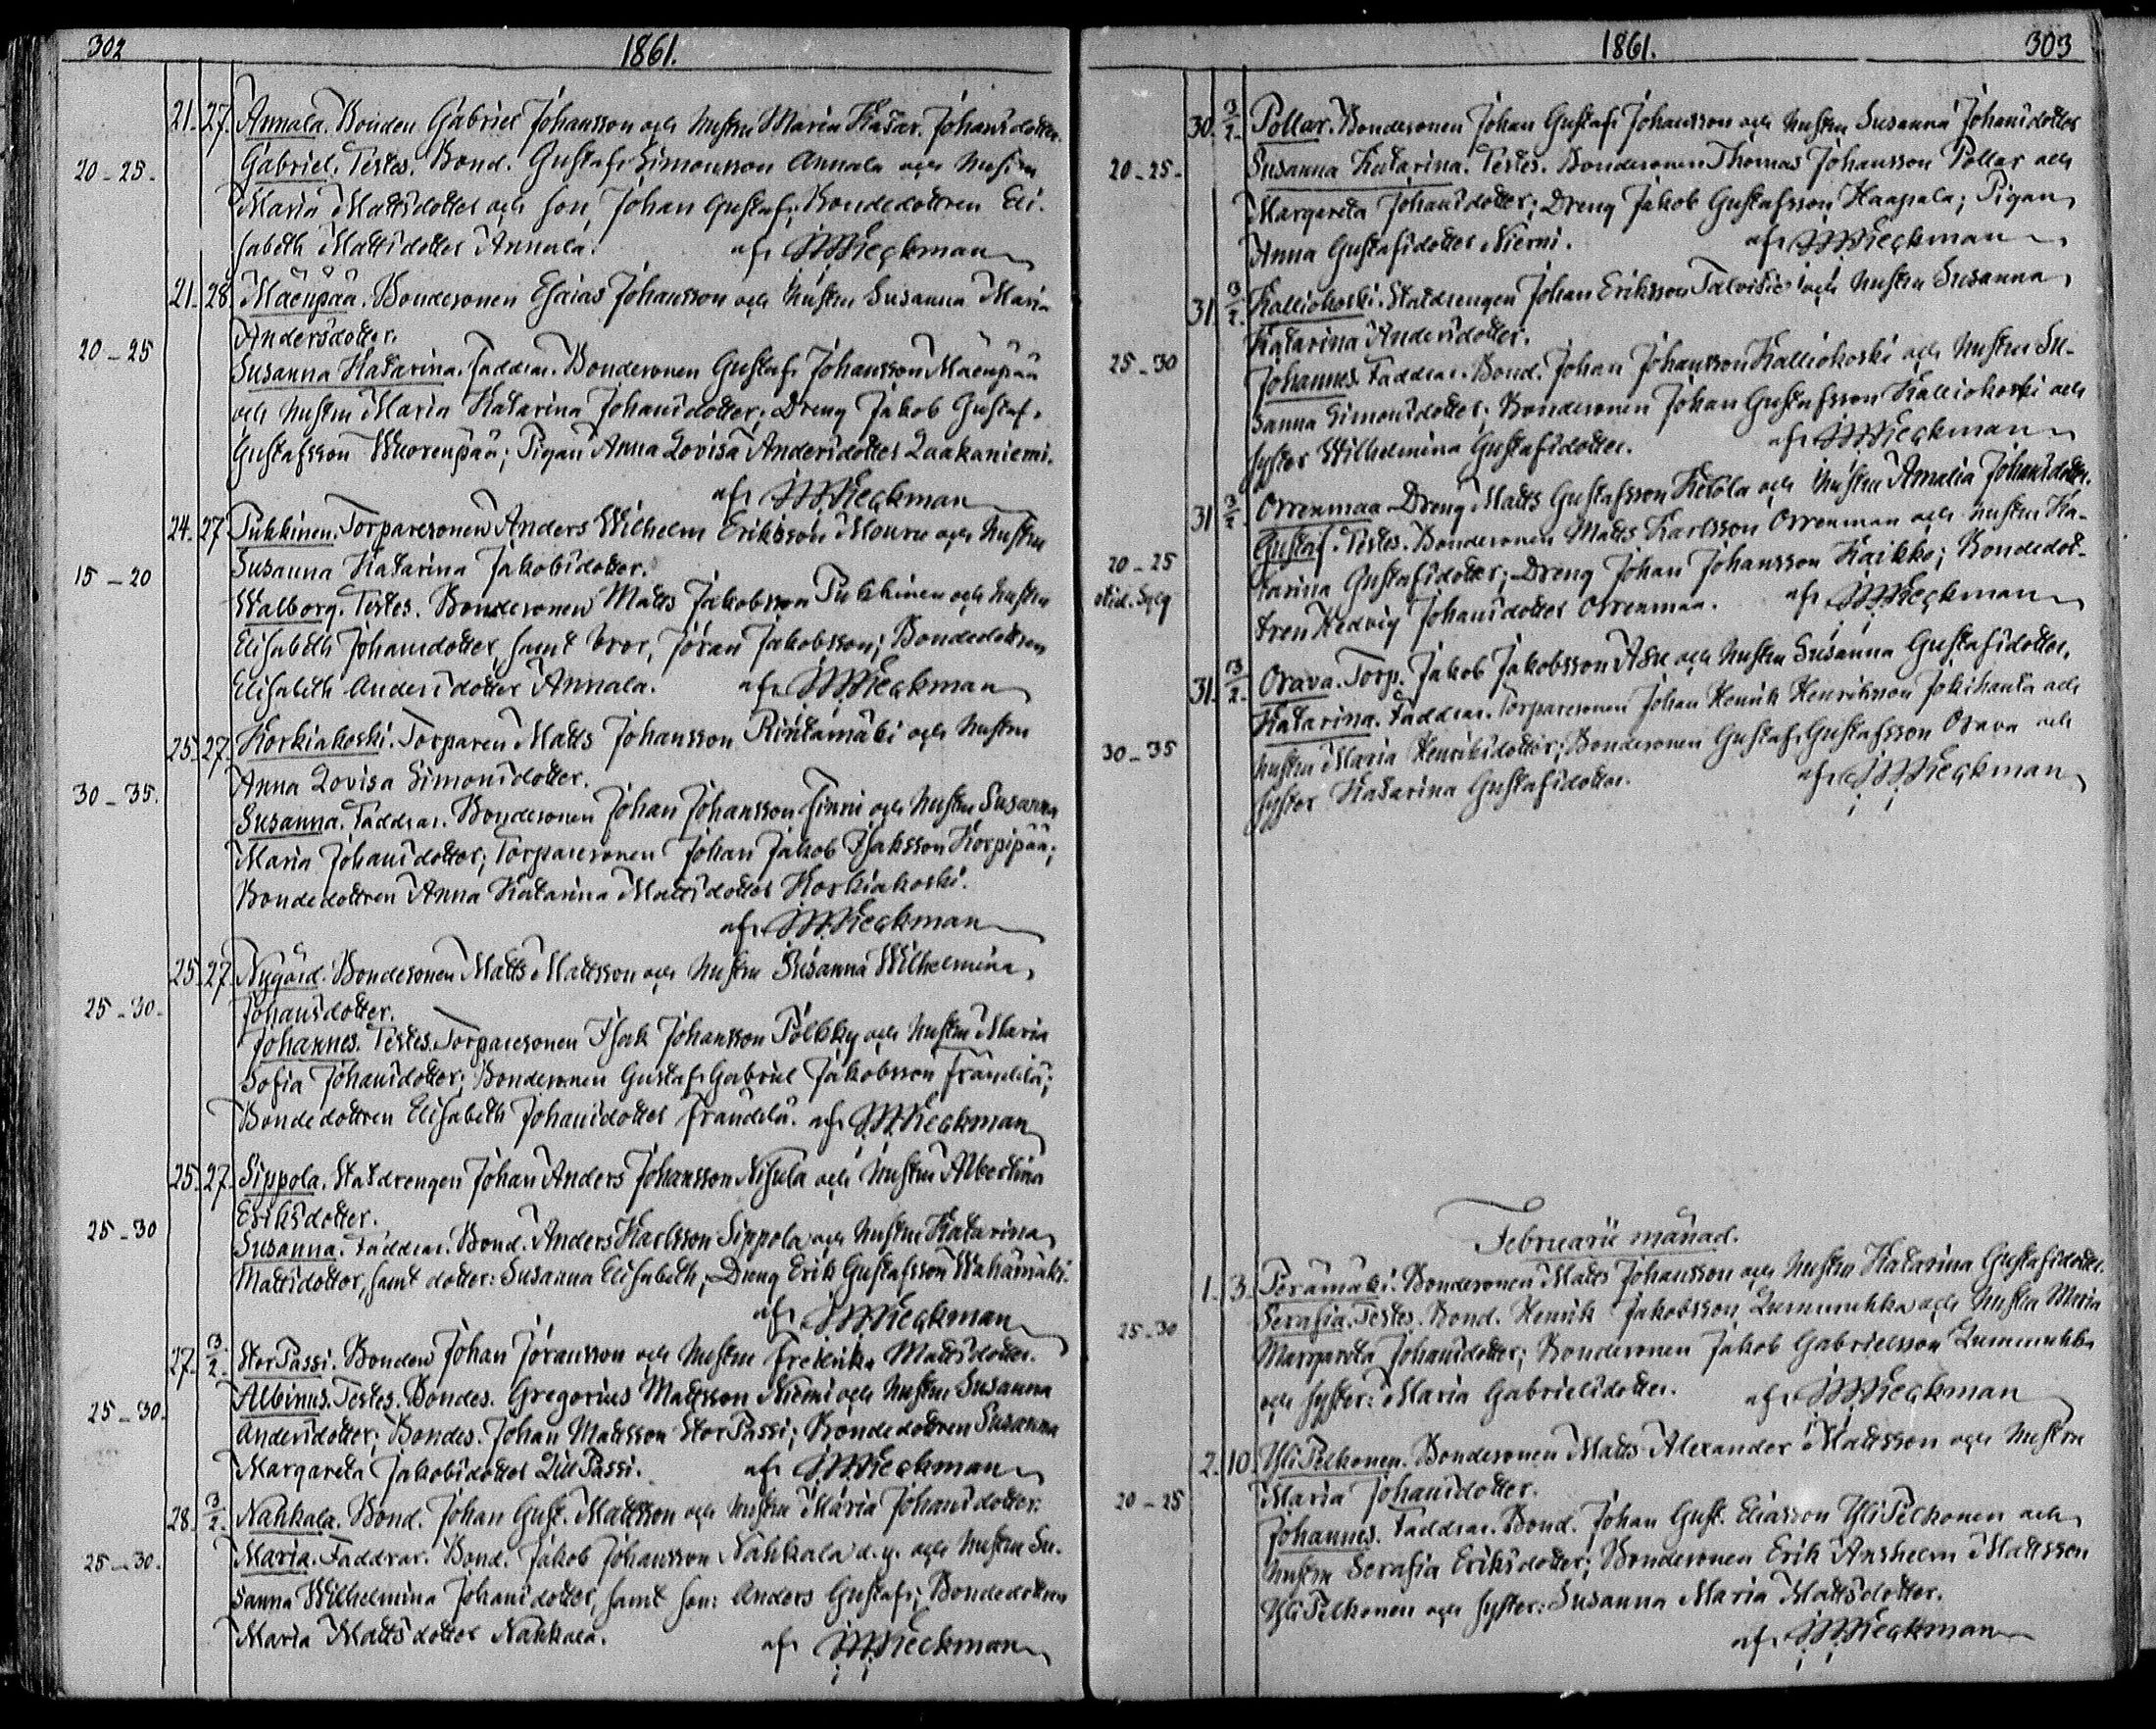 302 1861.
21. 27. Annala. Bonden Gabriel Johansson och hustru Maria Katar. Johansdotter.
20-25. Gabriel. Testes. Bond. Gustaf Simonsson Annala och hustru
Maria Mattsdotter och son, Johan Gustaf; Bondedottren Eli-
sabeth Mattsdotter Annala. af
21. 28 Mäenpää. Bondesonen Esaias Johansson och hustru Susanna Maria
20-25 Andersdotter.
Susanna Katarina. Faddrar. Bondesonen Gustaf Johansson Mäenpää
och hustru Maria Katarina Johansdotter; Dreng Jakob Gustaf
Gustafsson Wuorenpää; Pigan Anna Lovisa Andersdotter Laakaniemi.
af
24. 27 Pukkinen. Torparesonen Anders Wilhelm Eriksson Mouru och hustru
15-20 Susanna Katarina Jakobsdotter.
Walborg. Testes. Bondesonen Matts Jakobsson Pukkinen och hustru
Elisabeth Johansdotter, samt bror, Jöran Jakobsson; Bondedottren
Elisabeth Andersdotter Annala. af
25. 27. Korkiakoski. Torparen Matts Johansson Rintamäki och hustru
30-35. Anna Lovisa Simonsdotter.
Susanna. Faddrar. Bondesonen Johan Johansson Finni och hustru Susanna
Maria Johansdotter; Torparesonen Johan Jakob Isaksson Korpipää;
Bondedottren Anna Katarina Mattsdotter Korkiakoski.
af
25. 27. Nygård. Bondesonen Matts Mattsson och hustru Susanna Wilhelmina
25-30. Johansdotter.
Johannes. Testes. Torparesonen Isak Johansson Pölkky och hustru Maria
Sofia Johansdotter; Bondesonen Gustaf Gabriel Jakobsson Frändilä;
Bondedottren Elisabeth Johansdotter Frändilä. af
25. 27. Sippola. Statdrengen Johan Anders Johansson Nisula och hustru Albertina
25-30 Eriksdotter.
Susanna. Faddrar. Bond. Anders Karlsson Sippola och hustru Katarina
Mattsdotter, samt dotter: Susanna Elisabeth; Dreng Erik Gustafsson Wähämäki.
af
27. 3/2. StorPassi. Bonden Johan Jöransson och hustru Fredrika Mattsdotter.
25-30. Albinus. Testes. Bondes. Gregorius Mattsson Niemi och hustru Susanna
Andersdotter; Bondes. Johan Mattsson StorPassi; Bondedottren Susanna
Margareta Jakobsdotter LillPassi. af
28. 3/2. Nahkala. Bond. Johan Gust. Mattsson och hustru Maria Johansdotter.
25-30. Maria. Faddrar. Bond. Jakob Johansson Nahkala d.y. och hustru Su-
sanna Wilhelmina Johansdotter, samt son: Anders Gustaf; Bondedottren
Maria Mattsdotter Nahkala. af
1861. 303
30. 3/2. Pollar. Bondesonen Johan Gustaf Johansson och hustru Susanna Johansdotter
20-25. Susanna Katarina. Testes. Bondesonen Thomas Johansson Pollar och
Margareta Johansdotter; Dreng Jakob Gustafsson Haapala; Pigan
Anna Gustafsdotter Niemi. af
31. 3/2. Kalliokoski. Statdrengen Johan Eriksson Talvitie och hustru Susanna
Katarina Andersdotter.
25-30 Johannes. Faddrar. Bond. Johan Johansson Kalliokoski och hustru Su-
sanna Simonsdotter; Bondesonen Johan Gustafsson Kalliokoski och
syster Wilhelmina Gustafsdotter. af
31 3/2. Orrenmaa. Dreng Matts Gustafsson Ketola och hustru Amalia Johansdotter.
Gustaf. Testes. Bondesonen Matts Karlsson Orrenmaa och hustru Ka-
20-25 tarina Gustafsdotter; Dreng Johan Johansson Kaikko; Bondedot-
tren Hedvig Johansdotter Orrenmaa. af
31. 3/2. Orava. Torp. Jakob Jakobsson Asu och hustru Susanna Gustafsdotter.
Katarina. Faddrar. Torparesonen Johan Henrik Henriksson Jokihanta och
30-35 hustru Maria Henriksdotter; Bondesonen Gustaf Gustafsson Orava och
syster Katarina Gustafsdotter. af
Februarii månad.
1. 3. Perämäki. Bondesonen Matts Johansson och hustru Katarina Gustafsdotter.
25-30 Serafia. Testes. Bond. Henrik Jakobsson Lummukka och hustru Maria
Margareta Johansdotter; Bondesonen Jakob Gabrielsson Lummukka
och syster: Maria Gabrielsdotter. af
2. 10. YliPelkonen. Bondesonen Matts Alexander Mattsson och hustru
20-25 Maria Johansdotter.
Johannes. Faddrar. Bond. Johan Gust. Eliasson YliPelkonen och
hustru Serafia Eriksdotter; Bondesonen Erik Anshelm Mattsson
YliPelkonen och syster: Susanna Maria Mattsdotter.
af